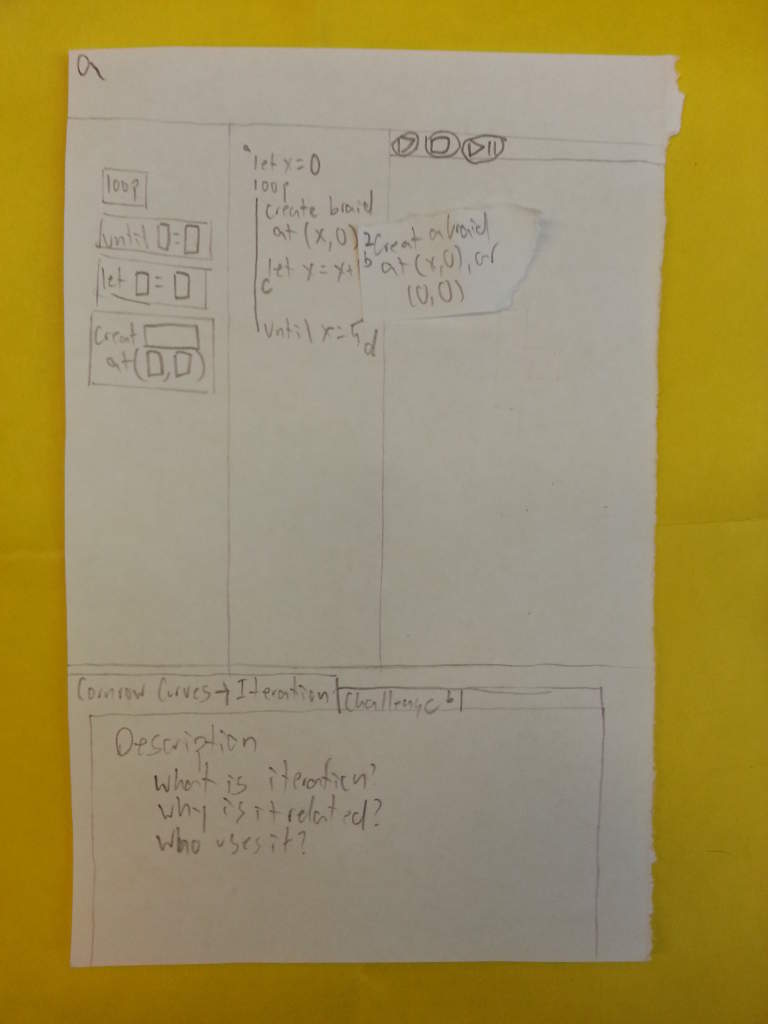 a
loop
until □=□
let □=□
Creat
at(□,□)
a
let x=0
loop
create braid
at (x,0)
let x=x+1
c
until x=5
d
2 Creat a braid
b at (x,0), or
(0,0)
Cornrow Curves→Iteration
Challenge b
Description
what is iteration?
why is it related?
who uses it?